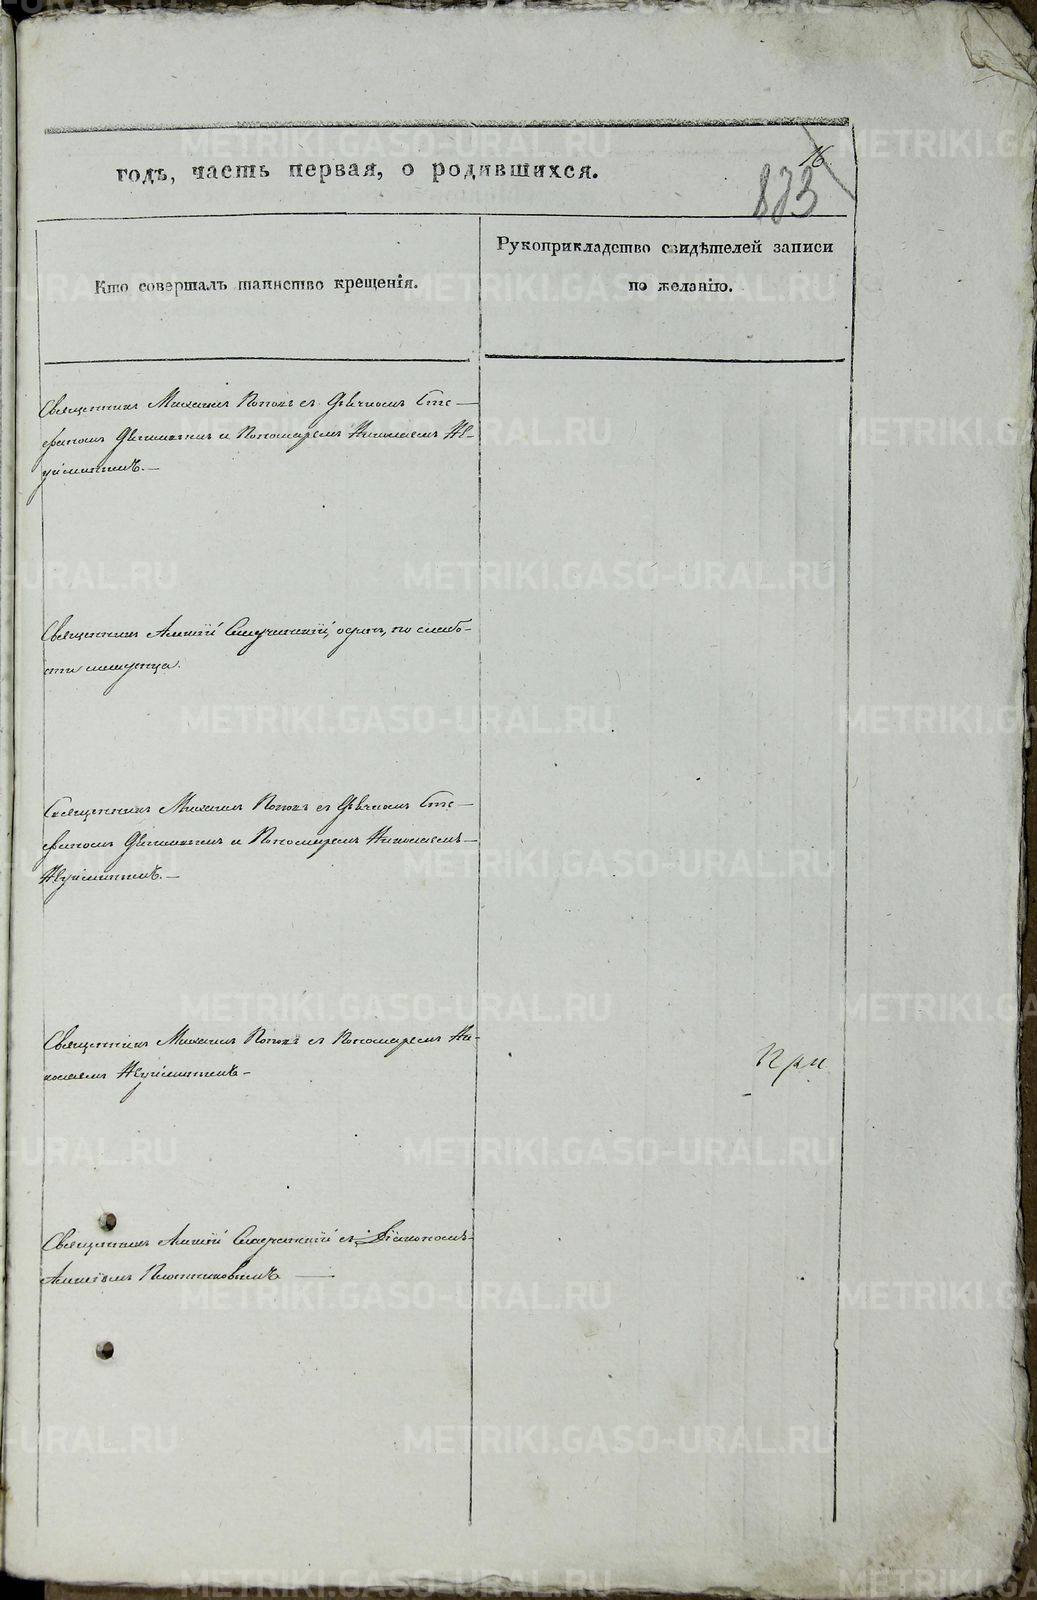 годъ, часть первая, о родившихся.
16
873
Кто совершалъ таинство крещенія.
Рукоприкладство свидѣтелей записи
по желанію.
Священникъ Михаилъ Поповъ съ Дьячкомъ Сте-
фаномъ и Пономаремъ Николаемъ
Священникъ Алексій одинъ, по слабо-
сти младенца.
Священникъ Михаилъ Поповъ съ Дьячкомъ Сте-
фаномъ и Пономаремъ Николаемъ
Священникъ Михаилъ Поповъ съ Пономаремъ Ни-
колаемъ
При
Священникъ Алексій съ Діакономъ
Алексѣемъ Плотниковымъ
METRIKI.GASO-URAL.RU